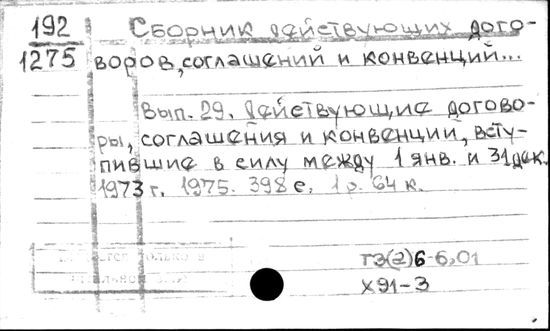 192
1275
Сборник действующих дого-
воров, соглашений и конвенций...
Вып. 29. Действующие догово-
ры, соглашения и конвенции, всту-
пившие в силу между 1 янв. и 31 дек.
1973 г. 1975. 398 с. 1 р. 64 к.
только в
Т3(2)6-6,01
Х91-3